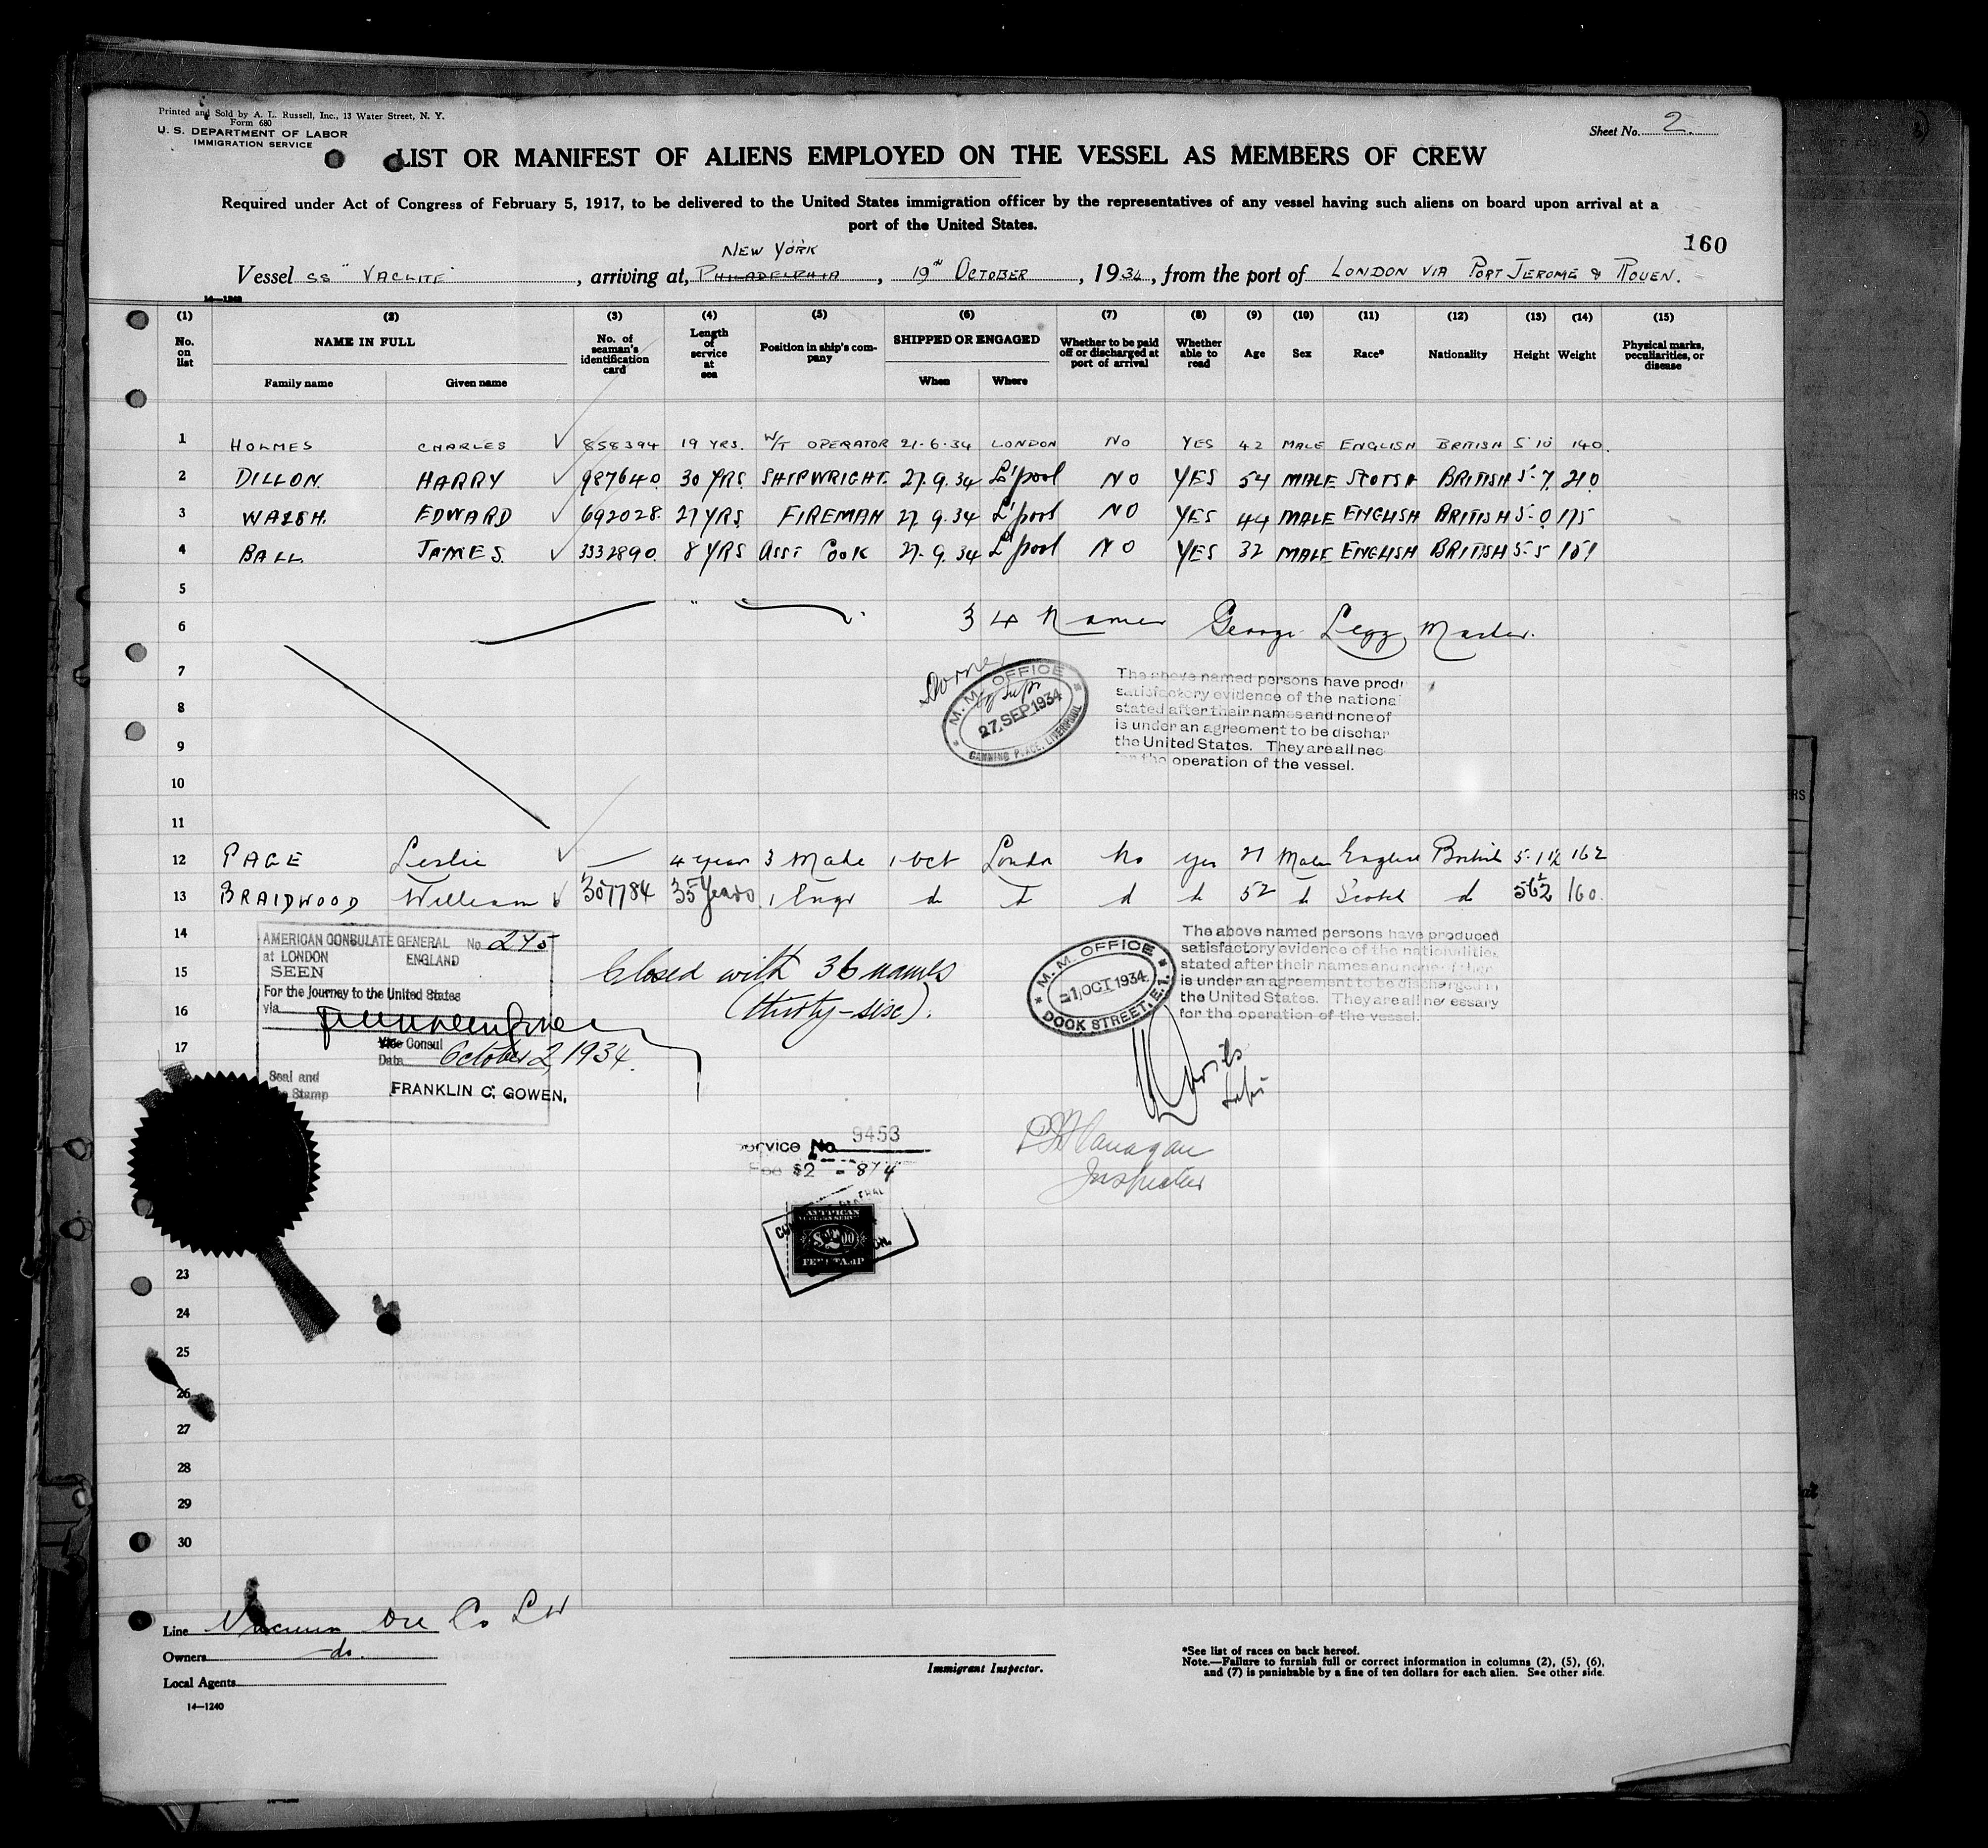 Printed and Sold by A. L. Russell, Inc., 13 Water Street, N. Y.
Form 680
U. S. DEPARTMENT OF LABOR
IMMIGRATION SERVICE
Sheet No. 2.
LIST OR MANIFEST OF ALIENS EMPLOYED ON THE VESSEL AS MEMBERS OF CREW
Required under Act of Congress of February 5, 1917, to be delivered to the United States immigration officer by the representatives of any vessel having such aliens on board upon arrival at a
port of the United States.
160
NEW YORK
Vessel SS "VACLITE", arriving at, PHILADELPHIA, 19th OCTOBER, 1934, from the port of LONDON VIA PORT JEROME & ROUEN.
14—1240
(1) (2) (3) (4) (5) (6) (7) (8) (9) (10) (11) (12) (13) (14) (15)
No. on list NAME IN FULL No. of seaman's identification card Length of service at sea Position in ship's company SHIPPED OR ENGAGED Whether to be paid off or discharged at port of arrival Whether able to read Age Sex Race* Nationality Height Weight Physical marks, peculiarities, or disease
Family name Given name When Where
1 HOLMES CHARLES ✓ 858394 19 YRS. W/T OPERATOR 21-6-34 LONDON NO YES 42 MALE ENGLISH BRITISH 5'10 140.
2 DILLON. HARRY ✓ 987640. 30 YRS. SHIPWRIGHT. 27.9.34 L'pool NO YES 54 MALE SCOTSH BRITISH 5-7. 210.
3 WALSH. EDWARD ✓ 692028. 27 YRS. FIREMAN 27.9.34 L'pool NO YES 44 MALE ENGLISH BRITISH 5-0 175
4 BALL. JAMES. ✓ 3332890. 8 YRS ASST COOK 27-9.34 L'pool NO YES 32 MALE ENGLISH BRITISH 5-5 151
5
6 34 Names George Legg, Master.
7
8
9
10
11
M. M. OFFICE
27 SEP 1934
CANNING PLACE, LIVERPOOL
The above named persons have prod
satisfactory evidence of the national
stated after their names and none of
is under an agreement to be dischar
the United States. They are all nec
for the operation of the vessel.
12 PAGE Leslie ✓ — 4 year 3 Mate 1 Oct London No yes 21 Male English British 5-11½ 162
13 BRAIDWOOD William ✓ 307784 35 Years 1 Engr d d d d 52 d Scotch d 5 6½ 160.
14
15
16
17
AMERICAN CONSULATE GENERAL No 245
at LONDON ENGLAND
SEEN
For the journey to the United States
via
Vice Consul
Date October 2, 1934.
Seal and
Stamp
FRANKLIN C. GOWEN,
Closed with 36 names
(thirty-six).
M. M. OFFICE
1 OCT 1934
DOCK STREET, E.1.
The above named persons have produced
satisfactory evidence of the nationalities
stated after their names and none of them
is under an agreement to be discharged in
the United States. They are all necessary
for the operation of the vessel.
Service No. 9453
Fee $2 = 8/4
Inspector
AMERICAN
$2.00
FEE STAMP
23
24
25
26
27
28
29
30
Line Vacuum Oil Co Ltd
Owners do.
Local Agents
14—1240
Immigrant Inspector.
*See list of races on back hereof.
Note.—Failure to furnish full or correct information in columns (2), (5), (6),
and (7) is punishable by a fine of ten dollars for each alien. See other side.